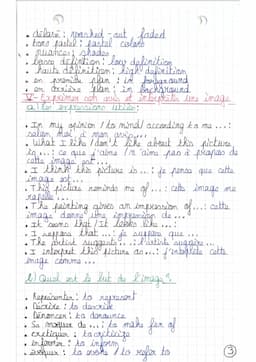 • délavé : washed-out, faded
• tons pastel : pastel colors
• nuances : shades
• basse définition : low definition
• haute définition : high definition
• en premier plan : in foreground
• en arrière plan : in background
V- Exprimer son avis et interpréter une image
a) les expressions utiles :
• In my opinion / to mind / according to me ... :
selon moi, à mon avis ...
• What I like / don't like about this picture
is ... : ce que j'aime / n'aime pas à propos de
cette image est ...
• I think this picture is ... : je pense que cette
image est ...
• This picture reminds me of ... : cette image me
rapelle ...
• The painting gives an impression of ... : cette
image donne une impression de ...
• It seems that / It looks like ... :
• I suppose that ... : je suppose que ...
• The artist suggests ... : l'artiste suggère ...
• I interpret this picture as ... : j'interprète cette
image comme ...
b) Quel est le but de l'image ?
• Représenter : to represent
• Décrire : to describe
• Dénoncer : to denounce
• Se moquer de ... : to make fun of
• critiquer : to criticize
• informer : to inform
• évoquer : to evoke / to refer to
3